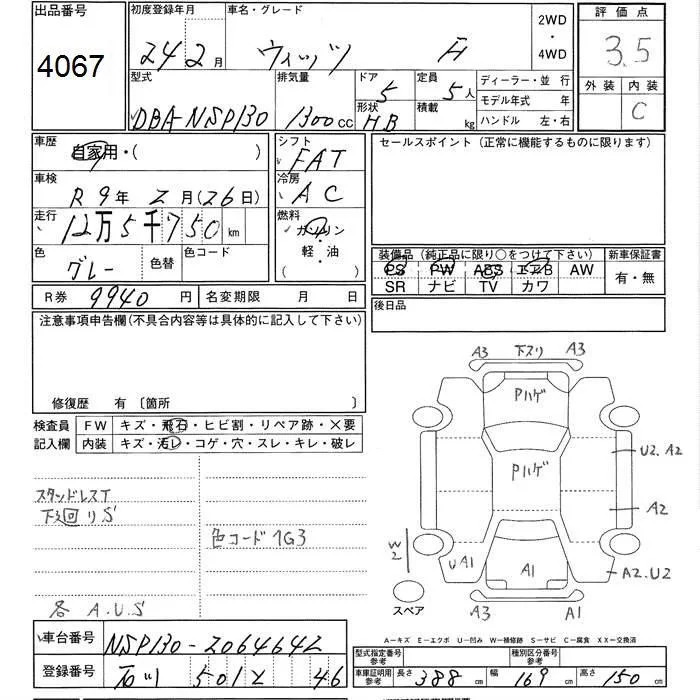 出品番号
4067
初度登録年月
24 2月
車名・グレード
ヴィッツ F
2WD
・
4WD
評価点
3.5
外装 内装
C
型式
DBA-NSP130
排気量
1300cc
ドア
5
形状
HB
定員
5人
積載
kg
ディーラー・並 行
モデル年式 年
ハンドル 左・右
車歴
自家用・( )
車検
R9年2月(26日)
走行
12万5千750km
色
グレー
色替
色コード
シフト
FAT
冷房
AC
燃料
ガソリン
・
軽・油
( )
R券 9940円
名変期限 月 日
セールスポイント (正常に機能するものに限ります)
装備品 (純正品に限り○をつけて下さい)
PS PW ABS エアB AW
SR ナビ TV カワ
新車保証書
有・無
後日品
注意事項申告欄(不具合内容等は具体的に記入して下さい)
修復歴 有 〔箇所 〕
検査員
記入欄
FW キズ・飛石・ヒビ割・リペア跡・×要
内装 キズ・汚レ・コゲ・穴・スレ・キレ・破レ
スタッドレスT
下廻リS
色コード1G3
各 A.U.S
A3 下スリ A3
Pハゲ
Pハゲ
U2.A2
A2
W2
UA1
A1
A2.U2
スペア
A3
A1
A-キズ E-エクボ U-凹み W-補修跡 S-サビ C-腐食 XX-交換済
車台番号 NSP130-2064642
登録番号 石川 501 46
型式指定番号
参考
種別区分番号
参考
車庫証明用
参考
長さ 388cm
幅 169cm
高さ 150cm